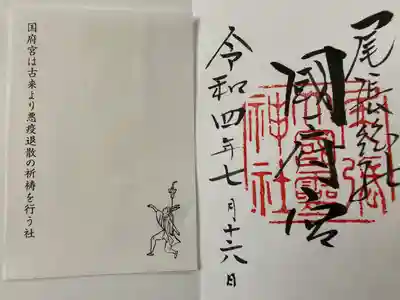 尾張総社
國府宮
令和四年七月十六日
神社
国府宮は古来より悪疫退散の祈祷を行う社